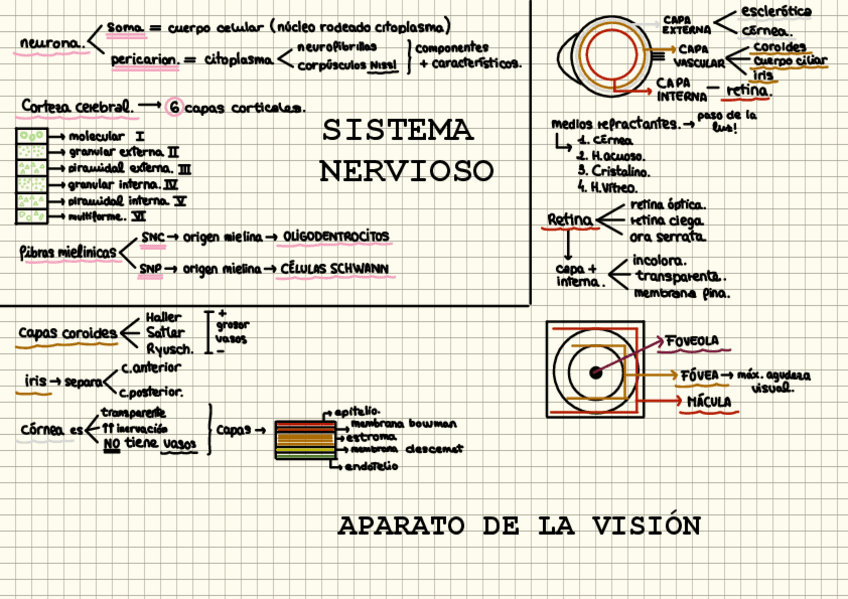 neurona.
soma = cuerpo celular (núcleo rodeado citoplasma)
pericarion. = citoplasma
neurofibrillas
corpúsculos Nissl
componentes
+ característicos.
Corteza cerebral. → 6 capas corticales.
→ molecular I
→ granular externa II
→ piramidal externa. III
→ granular interna. IV
→ piramidal interna. V
→ multiforme. VI
SISTEMA
NERVIOSO
fibras mielínicas
SNC → origen mielina → OLIGODENTROCITOS
SNP → origen mielina → CÉLULAS SCHWANN
CAPA
EXTERNA
esclerótica
CÉrnea.
CAPA
VASCULAR
coroides
cuerpo ciliar
iris
CAPA
INTERNA – retina.
medios refractantes. → paso de la
luz!
1. CÉrnea
2. H.acuoso.
3. Cristalino.
4. H.Vítreo.
Retina
retina óptica.
retina ciega.
ora serrata.
capa +
interna.
incolora.
transparente.
membrana fina.
Capas coroides
Haller
Satler
Ryusch.
+
grosor
vasos
-
iris → separa
c.anterior
c.posterior.
Córnea es
transparente
↑↑ inervación
NO tiene vasos
Capas →
epitelio.
membrana bowman
estroma
membrana descemet
endotelio
FOVEOLA
FÓVEA → máx. agudeza
visual.
MÁCULA
APARATO DE LA VISIÓN